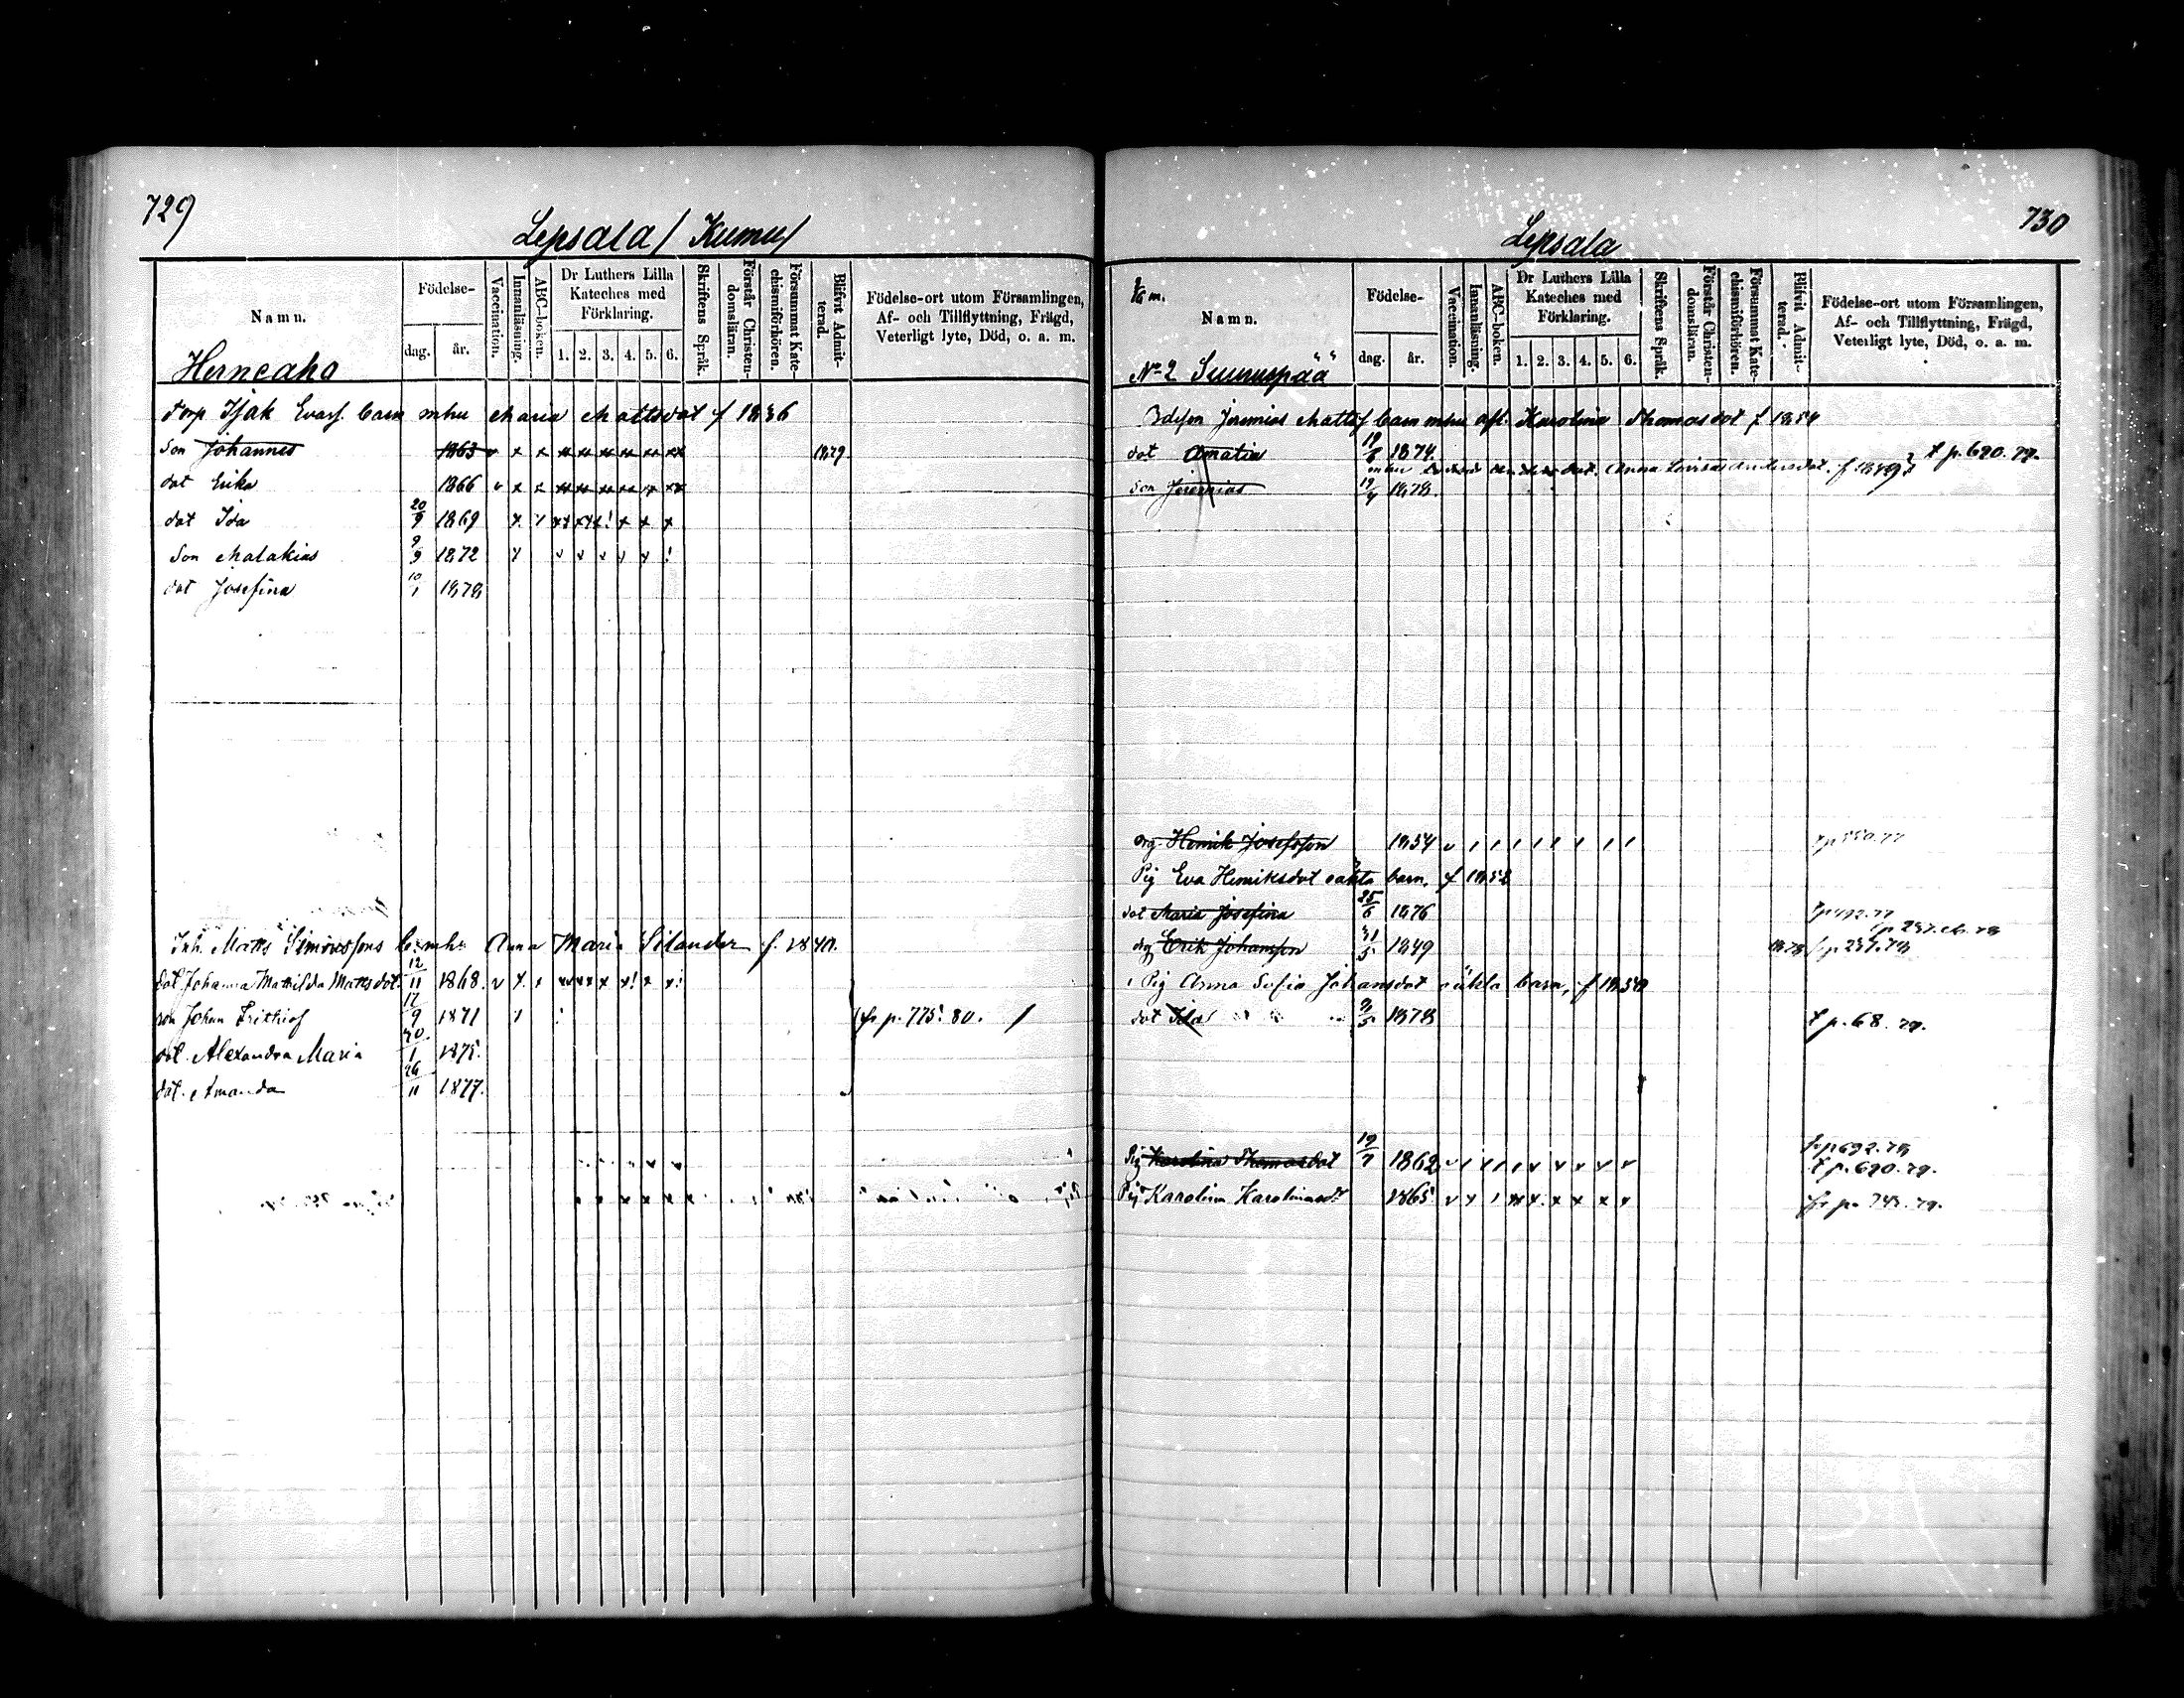 729
Lepsala / Kumu /
Namn.
Födelse-
dag.
år.
Vaccination.
Innanläsning.
ABC-boken.
Dr Luthers Lilla
Kateches med
Förklaring.
1. 2. 3. 4. 5. 6.
Skriftens Språk.
Förstår Christen-
domsläran.
Försummat Kate-
chismiförhören.
Blifvit Admit-
terad.
Födelse-ort utom Församlingen,
Af- och Tillflyttning, Frägd,
Veterligt lyte, Död, o. a. m.
Herneaho
torp Isak Evasf. barn mhu Maria Mattsdot f 1836
Son Johannes 1863 v x x x x x x x x 1879
dot Erika 1866 v x x x x x x x x
dot Ida 20/9 1869
Son Malakias 9/9 1872
dot Josefina 10/1 1878
Inh. Matts Simonssons b. mhu Anna Maria Silander f. 1840.
dot Johanna Matilda Mattsdot. 12/11 1868.
son Johan Frithiof 17/9 1871 fr p. 775. 80.
dot. Alexandra Maria 30/1 1875.
dot. Amanda 26/11 1877.
730
Lepsala
Namn.
Födelse-
dag.
år.
Vaccination.
Innanläsning.
ABC-boken.
Dr Luthers Lilla
Kateches med
Förklaring.
1. 2. 3. 4. 5. 6.
Skriftens Språk.
Förstår Christen-
domsläran.
Försummat Kate-
chismiförhören.
Blifvit Admit-
terad.
Födelse-ort utom Församlingen,
Af- och Tillflyttning, Frägd,
Veterligt lyte, Död, o. a. m.
No 2 Suuruspää
Bdeson Jeremias Mattsf barn mhu afl. Karolina Thomasdot f 1854
dot Amatia 19/6 1874. t p. 690. 79.
mhu Anna Lovisa Andersdot. f 1859
Son Jeremias 19/4 1878.
drg Henrik Josefsson 1854
Pig Eva Henriksdot oäkta barn, f 1852
dot Maria Josefina 25/6 1876
drg Erik Johansson 31/5 1849 1878 fr p. 237. 78
Pig Anna Sofia Johansdot oäkta barn, f 1850
dot Ida 9/5 1878 t p. 68. 79.
Pig Karolina Thomasdot 19/7 1862 fr p 692. 78
t p. 690. 79.
Pig Karolina Karolinasdt 1865 fr p. 743. 79.